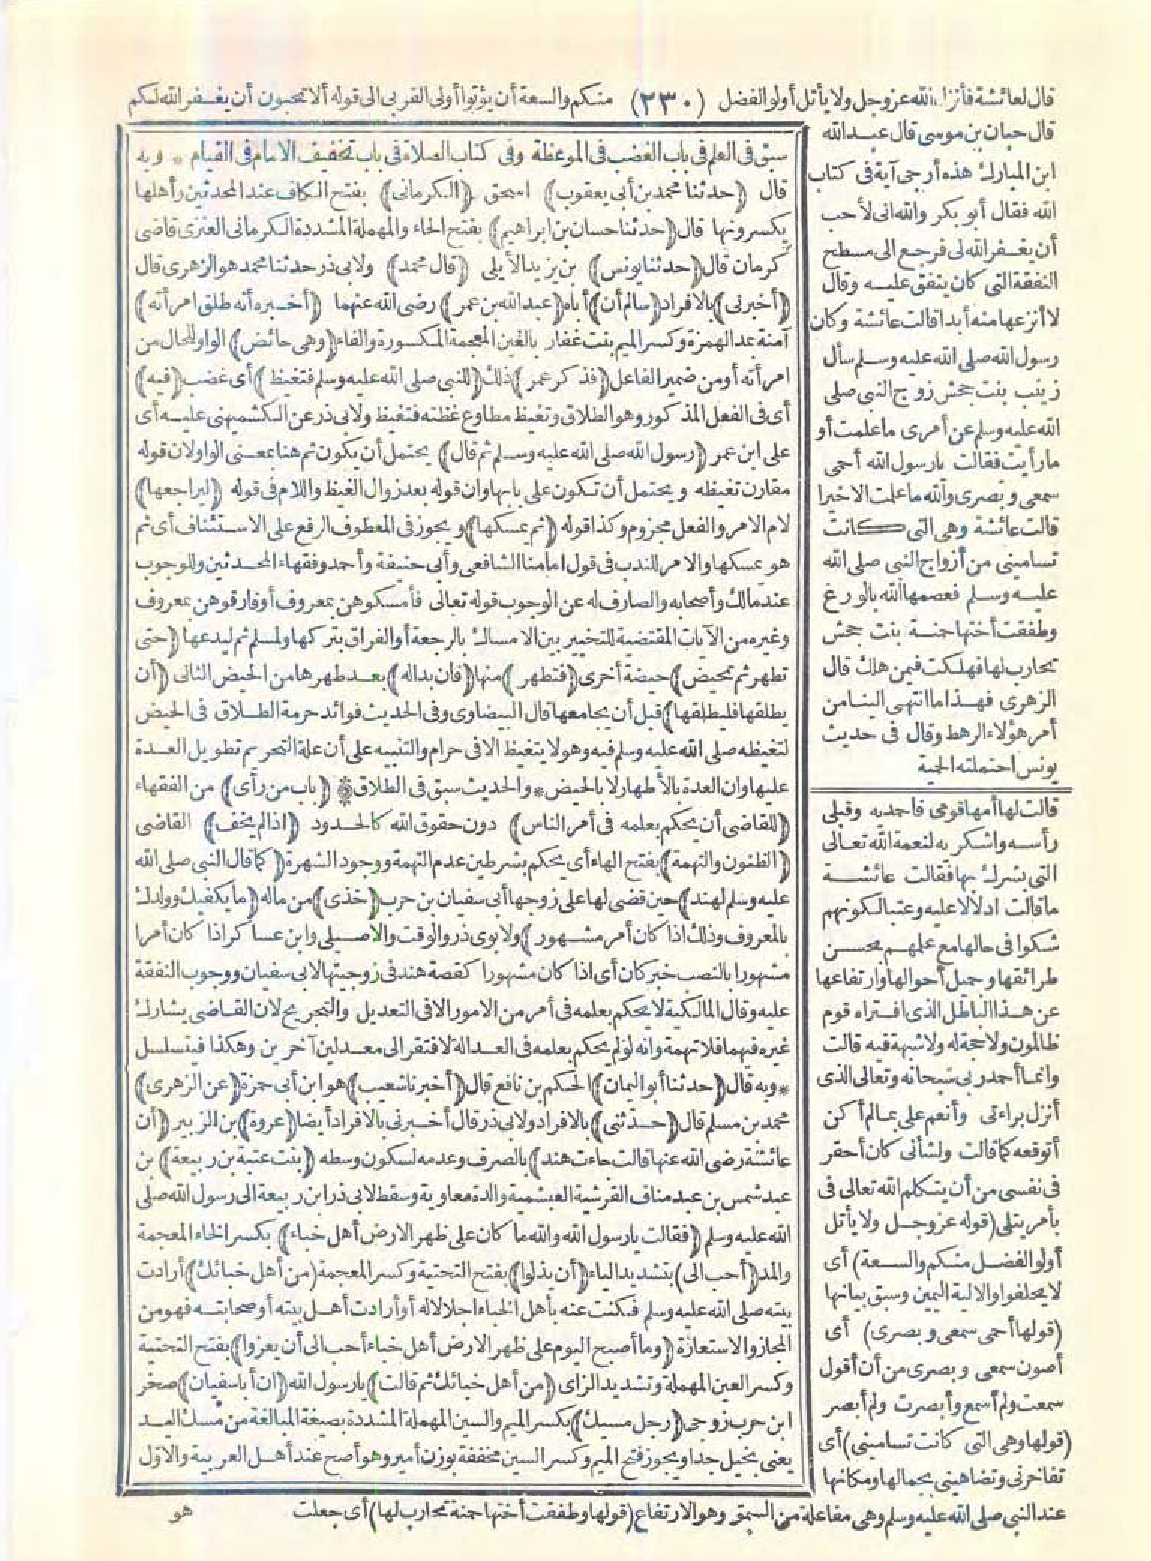 قال لعائشة فأنزل الله عز وجل ولا يأتل أولو الفضل (٢٣٠) منكم والسعة أن يؤتوا أولى القربى الى قوله ألا تحبون أن يغفر الله لكم
قال حبان بن موسى قال عبد الله
ابن المبارك هذه أرجى آية فى كتاب
الله فقال أبو بكر والله انى لأحب
أن يغفر الله لى فرجع الى مسطح
النفقة التى كان ينفق عليه وقال
لا أنزعها منه أبدا قالت عائشة وكان
رسول الله صلى الله عليه وسلم سأل
زينب بنت جحش زوج النبى صلى
الله عليه وسلم عن أمرى ما علمت أو
ما رأيت فقالت يا رسول الله أحمى
سمعى وبصرى والله ما علمت الا خيرا
قالت عائشة وهى التى كانت
تسامينى من أزواج النبى صلى الله
عليه وسلم فعصمها الله بالورع
وطفقت أختها حمنة بنت جحش
تحارب لها فهلكت فيمن هلك قال
الزهرى فهذا ما انتهى الينا من
أمر هؤلاء الرهط وقال فى حديث
يونس احتملته الحمية
قالت لها أمها قومى فاحمديه وقبلى
رأسه واشكريه لنعمة الله تعالى
التى بشرك بها فقالت عائشة
ما قالت ادلالا عليه وعتبا لكونهم
شكوا فى حالها مع علمهم بحسن
طرائقها وجميل أحوالها وارتفاعها
عن هذا الباطل الذى افتراه قوم
ظالمون ولا حجة له ولا شبهة فيه قالت
وانما أحمد ربى سبحانه وتعالى الذى
أنزل براءتى وأنعم على بما لم أكن
أتوقعه كما قالت ولشأنى كان أحقر
فى نفسى من أن يتكلم الله تعالى فى
بأمر يتلى (قوله عز وجل ولا يأتل
أولو الفضل منكم والسعة) أى
لا يحلفوا والالية اليمين وسبق بيانها
(قولها أحمى سمعى وبصرى) أى
أصون سمعى وبصرى من أن أقول
سمعت ولم أسمع وأبصرت ولم أبصر
(قولها وهى التى كانت تسامينى) أى
تفاخرنى وتضاهينى بجمالها ومكانها
عند النبى صلى الله عليه وسلم وهى مفاعلة من السمو وهو الارتفاع (قولها وطفقت أختها حمنة تحارب لها) أى جعلت
سبق فى العلم فى باب الغضب فى الموعظة وفى كتاب الصلاة فى باب تخفيف الامام فى القيام * وبه
قال (حدثنا محمد بن أبى يعقوب) اسحق (الكرمانى) بفتح الكاف عند المحدثين وأهلها
يكسرونها قال (حدثنا حسان بن ابراهيم) بفتح الحاء والمهملة المشددة الكرمانى العنزى قاضى
كرمان قال (حدثنا يونس) بن يزيد الأيلى (قال محمد) ولابى ذر حدثنا محمد هو الزهرى قال
(أخبرنى) بالافراد (سالم أن) أباه (عبد الله بن عمر) رضى الله عنهما (أخبره أنه طلق امرأته)
آمنة بمد الهمزة وكسر الميم بنت غفار بالغين المعجمة المكسورة والفاء (وهى حائض) الواو للحال من
امرأته أو من ضمير الفاعل (فذكر عمر) ذلك (للنبى صلى الله عليه وسلم فتغيظ) أى غضب (فيه)
أى فى الفعل المذكور وهو الطلاق وتغيظ مطاوع غظته فتغيظ ولابى ذر عن الكشميهنى عليه أى
على ابن عمر (رسول الله صلى الله عليه وسلم ثم قال) يحتمل أن يكون ثم هنا بمعنى الواو لان قوله
مقارن تغيظه ويحتمل أن تكون على بابها وان قوله بعد زوال الغيظ واللام فى قوله (ليراجعها)
لام الامر والفعل مجزوم وكذا قوله (ثم يمسكها) ويجوز فى المعطوف الرفع على الاستئناف أى ثم
هو يمسكها والامر للندب فى قول امامنا الشافعى وأبى حنيفة وأحمد وفقهاء المحدثين وللوجوب
عند مالك وأصحابه والصارف له عن الوجوب قوله تعالى فأمسكوهن بمعروف أو فارقوهن بمعروف
وغيره من الآيات المقتضية للتخيير بين الامساك بالرجعة أو الفراق بتركها ولمسلم ثم ليدعها (حتى
تطهر ثم تحيض) حيضة أخرى (فتطهر) منها (فان بدا له) بعد طهرها من الحيض الثانى (أن
يطلقها فليطلقها) قبل أن يجامعها قال البيضاوى وفى الحديث فوائد حرمة الطلاق فى الحيض
لتغيظه صلى الله عليه وسلم فيه وهو لا يتغيظ الا فى حرام والتنبيه على أن علة التحريم تطويل العدة
عليها وان العدة بالأطهار لا بالحيض * والحديث سبق فى الطلاق * (باب من رأى) من الفقهاء
(للقاضى أن يحكم بعلمه فى أمر الناس) دون حقوق الله كالحدود (اذا لم يخف) القاضى
(الظنون والتهمة) بفتح الهاء أى يحكم بشرطين عدم التهمة ووجود الشهرة (كما قال النبى صلى الله
عليه وسلم لهند) حين قضى لها على زوجها أبى سفيان بن حرب (خذى) من ماله (ما يكفيك وولدك
بالمعروف وذلك اذا كان أمر مشهور) ولا بوى ذر والوقت والاصيلى وابن عساكر اذا كان أمرا
مشهورا بالنصب خبر كان أى اذا كان مشهورا كقصة هند فى زوجيتها لابى سفيان ووجوب النفقة
عليه وقال المالكية لا يحكم بعلمه فى أمر من الامور الا فى التعديل والتجريح لان القاضى يشارك
غيره فيهما فلا تهمة وانه لو لم يحكم بعلمه فى العدالة لافتقر الى معدلين آخرين وهكذا فيتسلسل
* وبه قال (حدثنا أبو اليمان) الحكم بن نافع قال (أخبرنا شعيب) هو ابن أبى حمزة (عن الزهرى)
محمد بن مسلم قال (حدثنى) بالافراد ولابى ذر قال أخبرنى بالافراد أيضا (عروة) بن الزبير (أن
عائشة رضى الله عنها قالت جاءت هند) بالصرف وعدمه لسكون وسطه (بنت عتبة بن ربيعة) بن
عبد شمس بن عبد مناف القرشية العبشمية والدة معاوية وسقط لابى ذر ابن ربيعة الى رسول الله صلى
الله عليه وسلم (فقالت يا رسول الله والله ما كان على ظهر الارض أهل خباء) بكسر الخاء المعجمة
والمد (أحب الى) بتشديد الياء (أن يذلوا) بفتح التحتية وكسر المعجمة (من أهل خبائك) أرادت
بيته صلى الله عليه وسلم فكنت عنه بأهل الخباء اجلالا له أو أرادت أهل بيته أو صحابته فهو من
المجاز والاستعارة (وما أصبح اليوم على ظهر الارض أهل خباء أحب الى أن يعزوا) بفتح التحتية
وكسر العين المهملة وتشديد الزاى (من أهل خبائك ثم قالت) يا رسول الله (ان أبا سفيان) صخر
ابن حرب زوجى (رجل مسيك) بكسر الميم والسين المهملة المشددة بصيغة المبالغة من مسك اليد
يعنى بخيل جدا ويجوز فتح الميم وكسر السين مخففة بوزن أمير وهو أصح عند أهل العربية والاول
هو